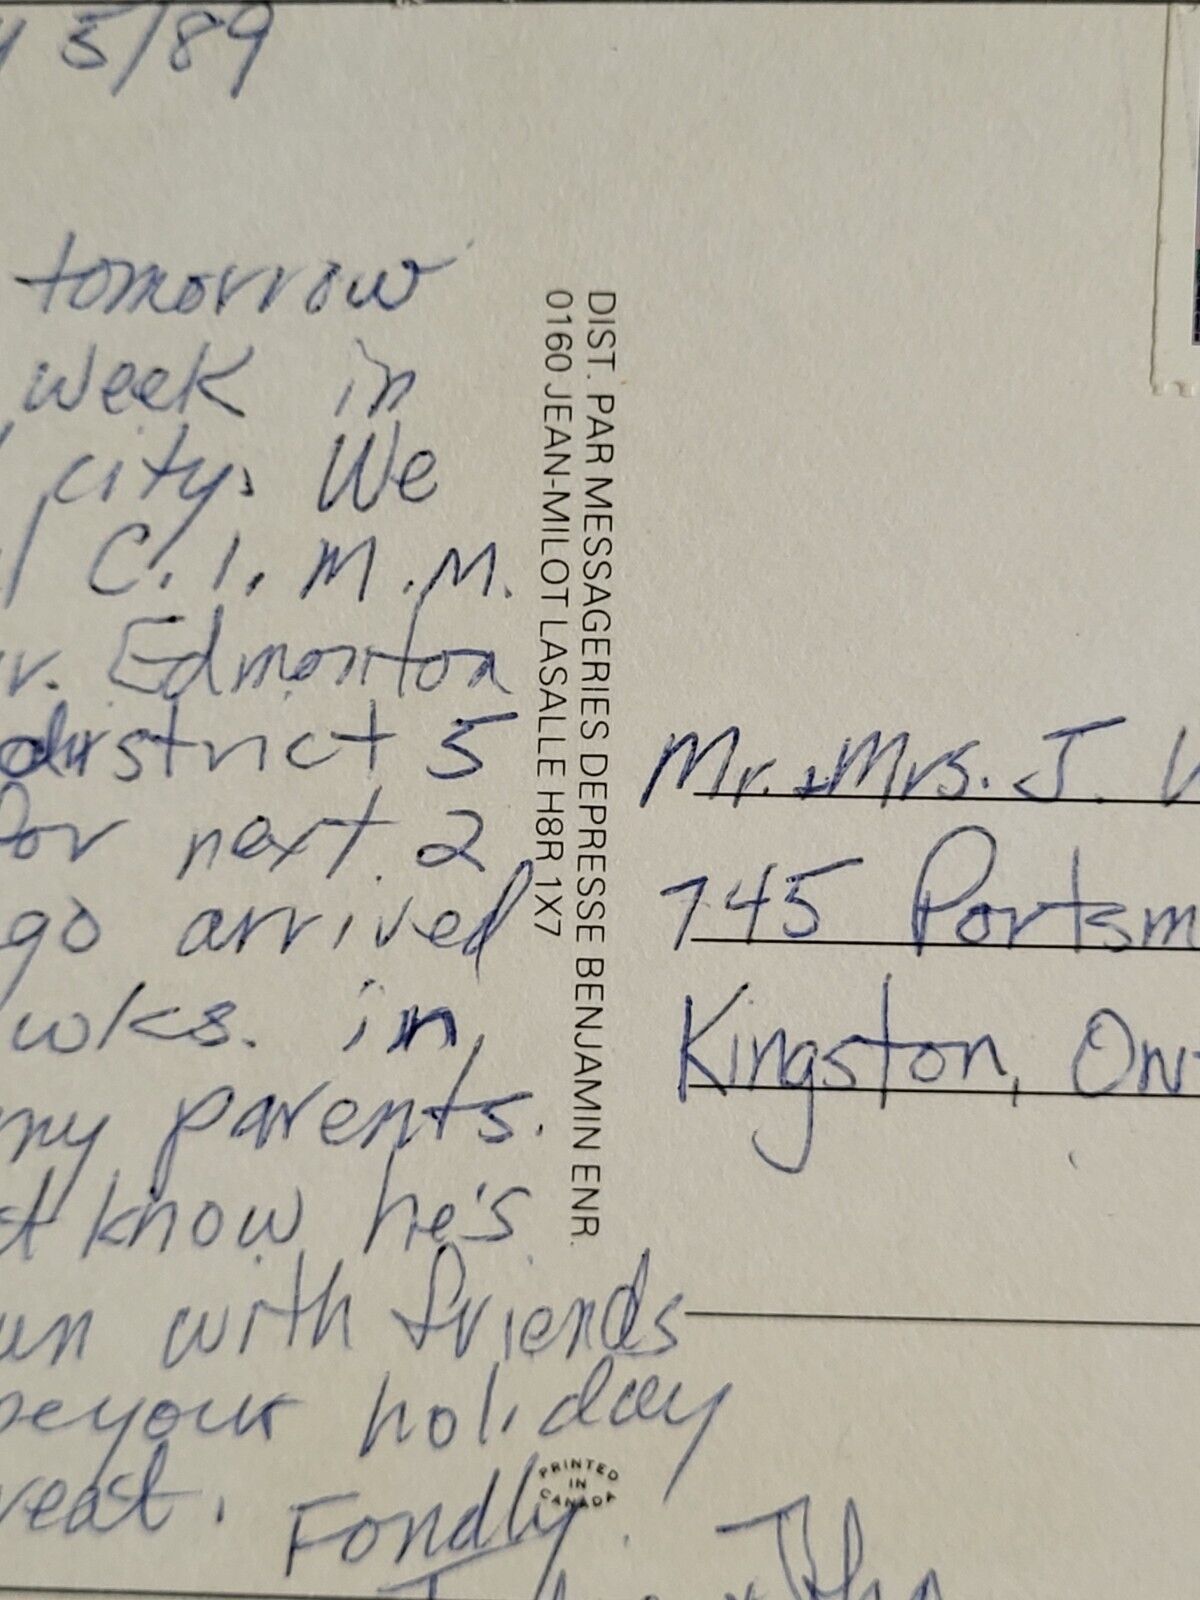 5/89
tomorrow
week in
city. We
C.I.M.M.
Edmonton
district 5
for next 2
go arrived
wks. in
my parents.
know he's
with friends
holiday
Fondly
DIST. PAR MESSAGERIES DEPRESSE BENJAMIN ENR.
0160 JEAN-MILOT LASALLE H8R 1X7
Mr. + Mrs. J.
745 Portsm
Kingston, Ont
PRINTED
IN
CANADA